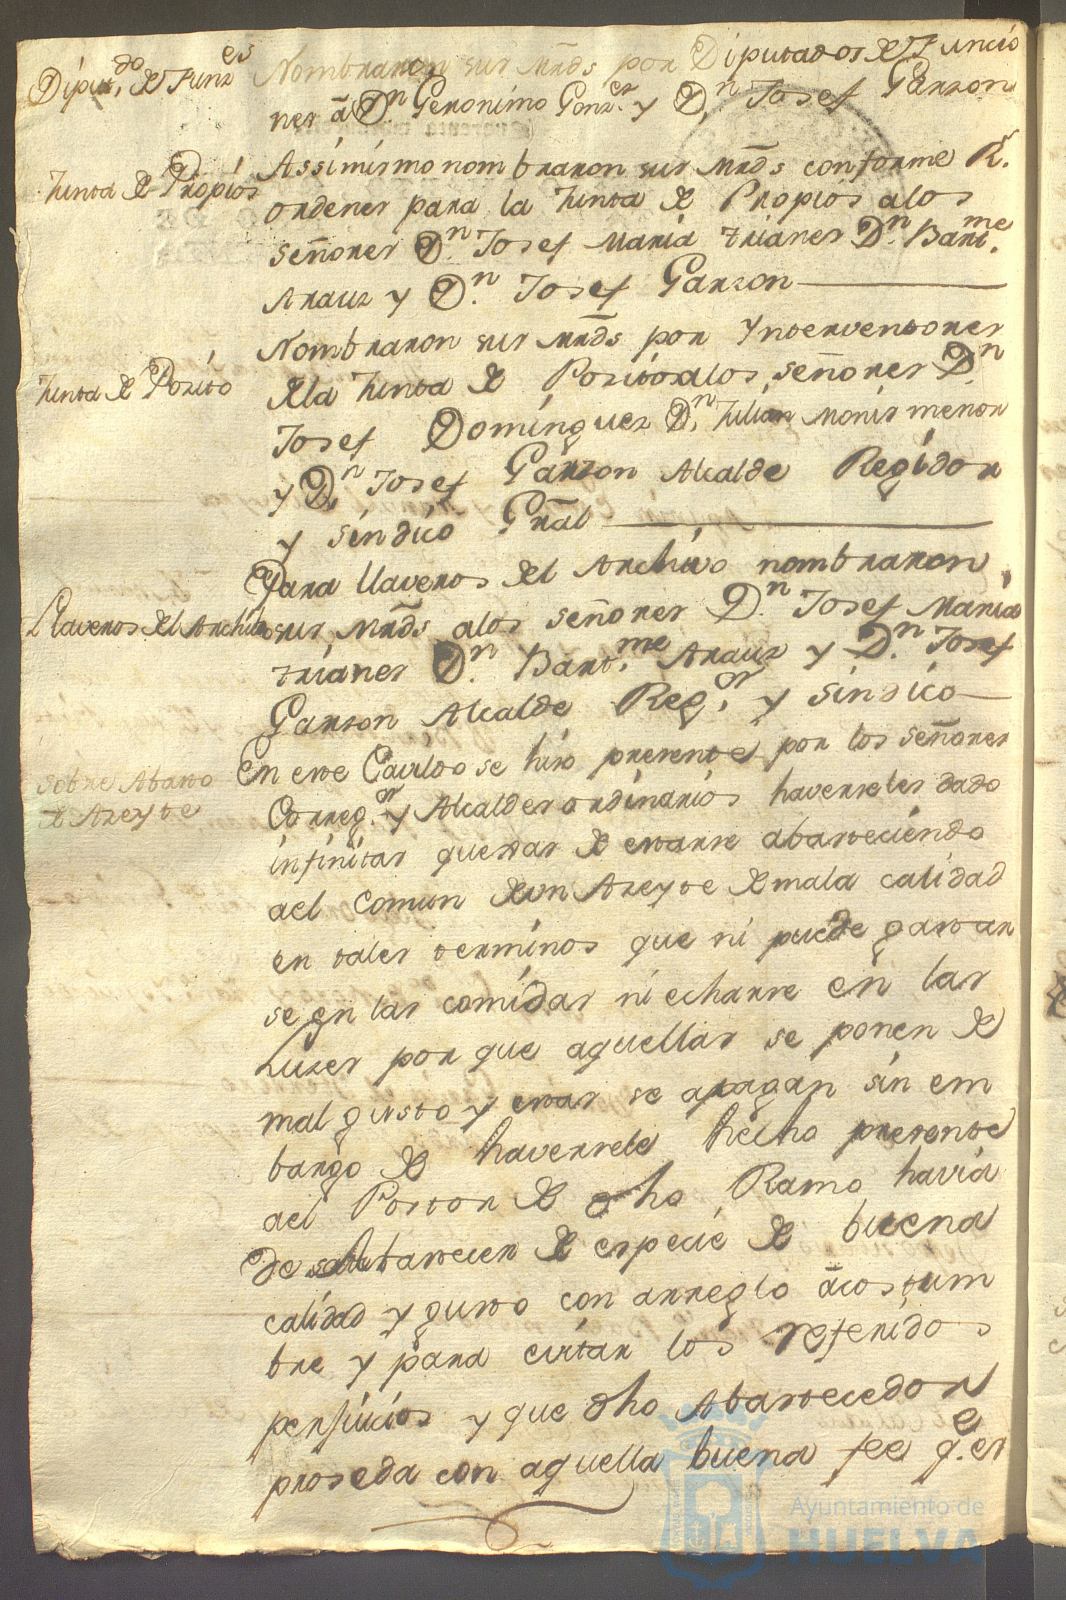 Diput.dos de Funz.es
Nombraron sus Mrds por Diputados de Funcio
nes â Dn. Geronimo Gonz.ez y Dn. Josef Garzon
Junta de Propios
Assimismo nombraron sus Mrds conforme R.s
ordenes para la Junta de Propios alos
señores Dn. Josef Maria Trianes Dn. Bart.me
Arauz y Dn. Josef Garzon
Junta de Posito
Nombraron sus Mrds por Ynterventores
dela Junta de Positos alos señores Dn.
Josef Dominguez Dn. Julian Monis menor
y Dn. Josef Garzon Alcalde Regidor
y sindico Gral
Llaveros del Archibo
Para llaveros del Archivo nombraron
sus Mrds alos señores Dn. Josef Maria
Trianes Dn. Bart.me Arauz y Dn. Josef
Garzon Alcalde Reg.or y Sindico
Sobre Abasto
de Azeyte
En este Cavildo se hizo presente por los señores
Correg.or y Alcaldes ordinarios haverseles dado
infinitas quexas de estarse abasteciendo
ael Comun de un Azeyte de mala calidad
en tales terminos que ni puede gastar
se en las comidas ni echarse en las
Luzes por que aquellas se ponen de
mal gusto y estas se apagan sin em
bargo de haversele hecho presente
ael Postor de dho Ramo havia
de abastecer de especie de buena
calidad y gusto con arreglo âcostum
bre y para evitar los referidos
perjuicios y que dho Abastecedor
proseda con aquella buena fee q.e es
Ayuntamiento de
HUELVA